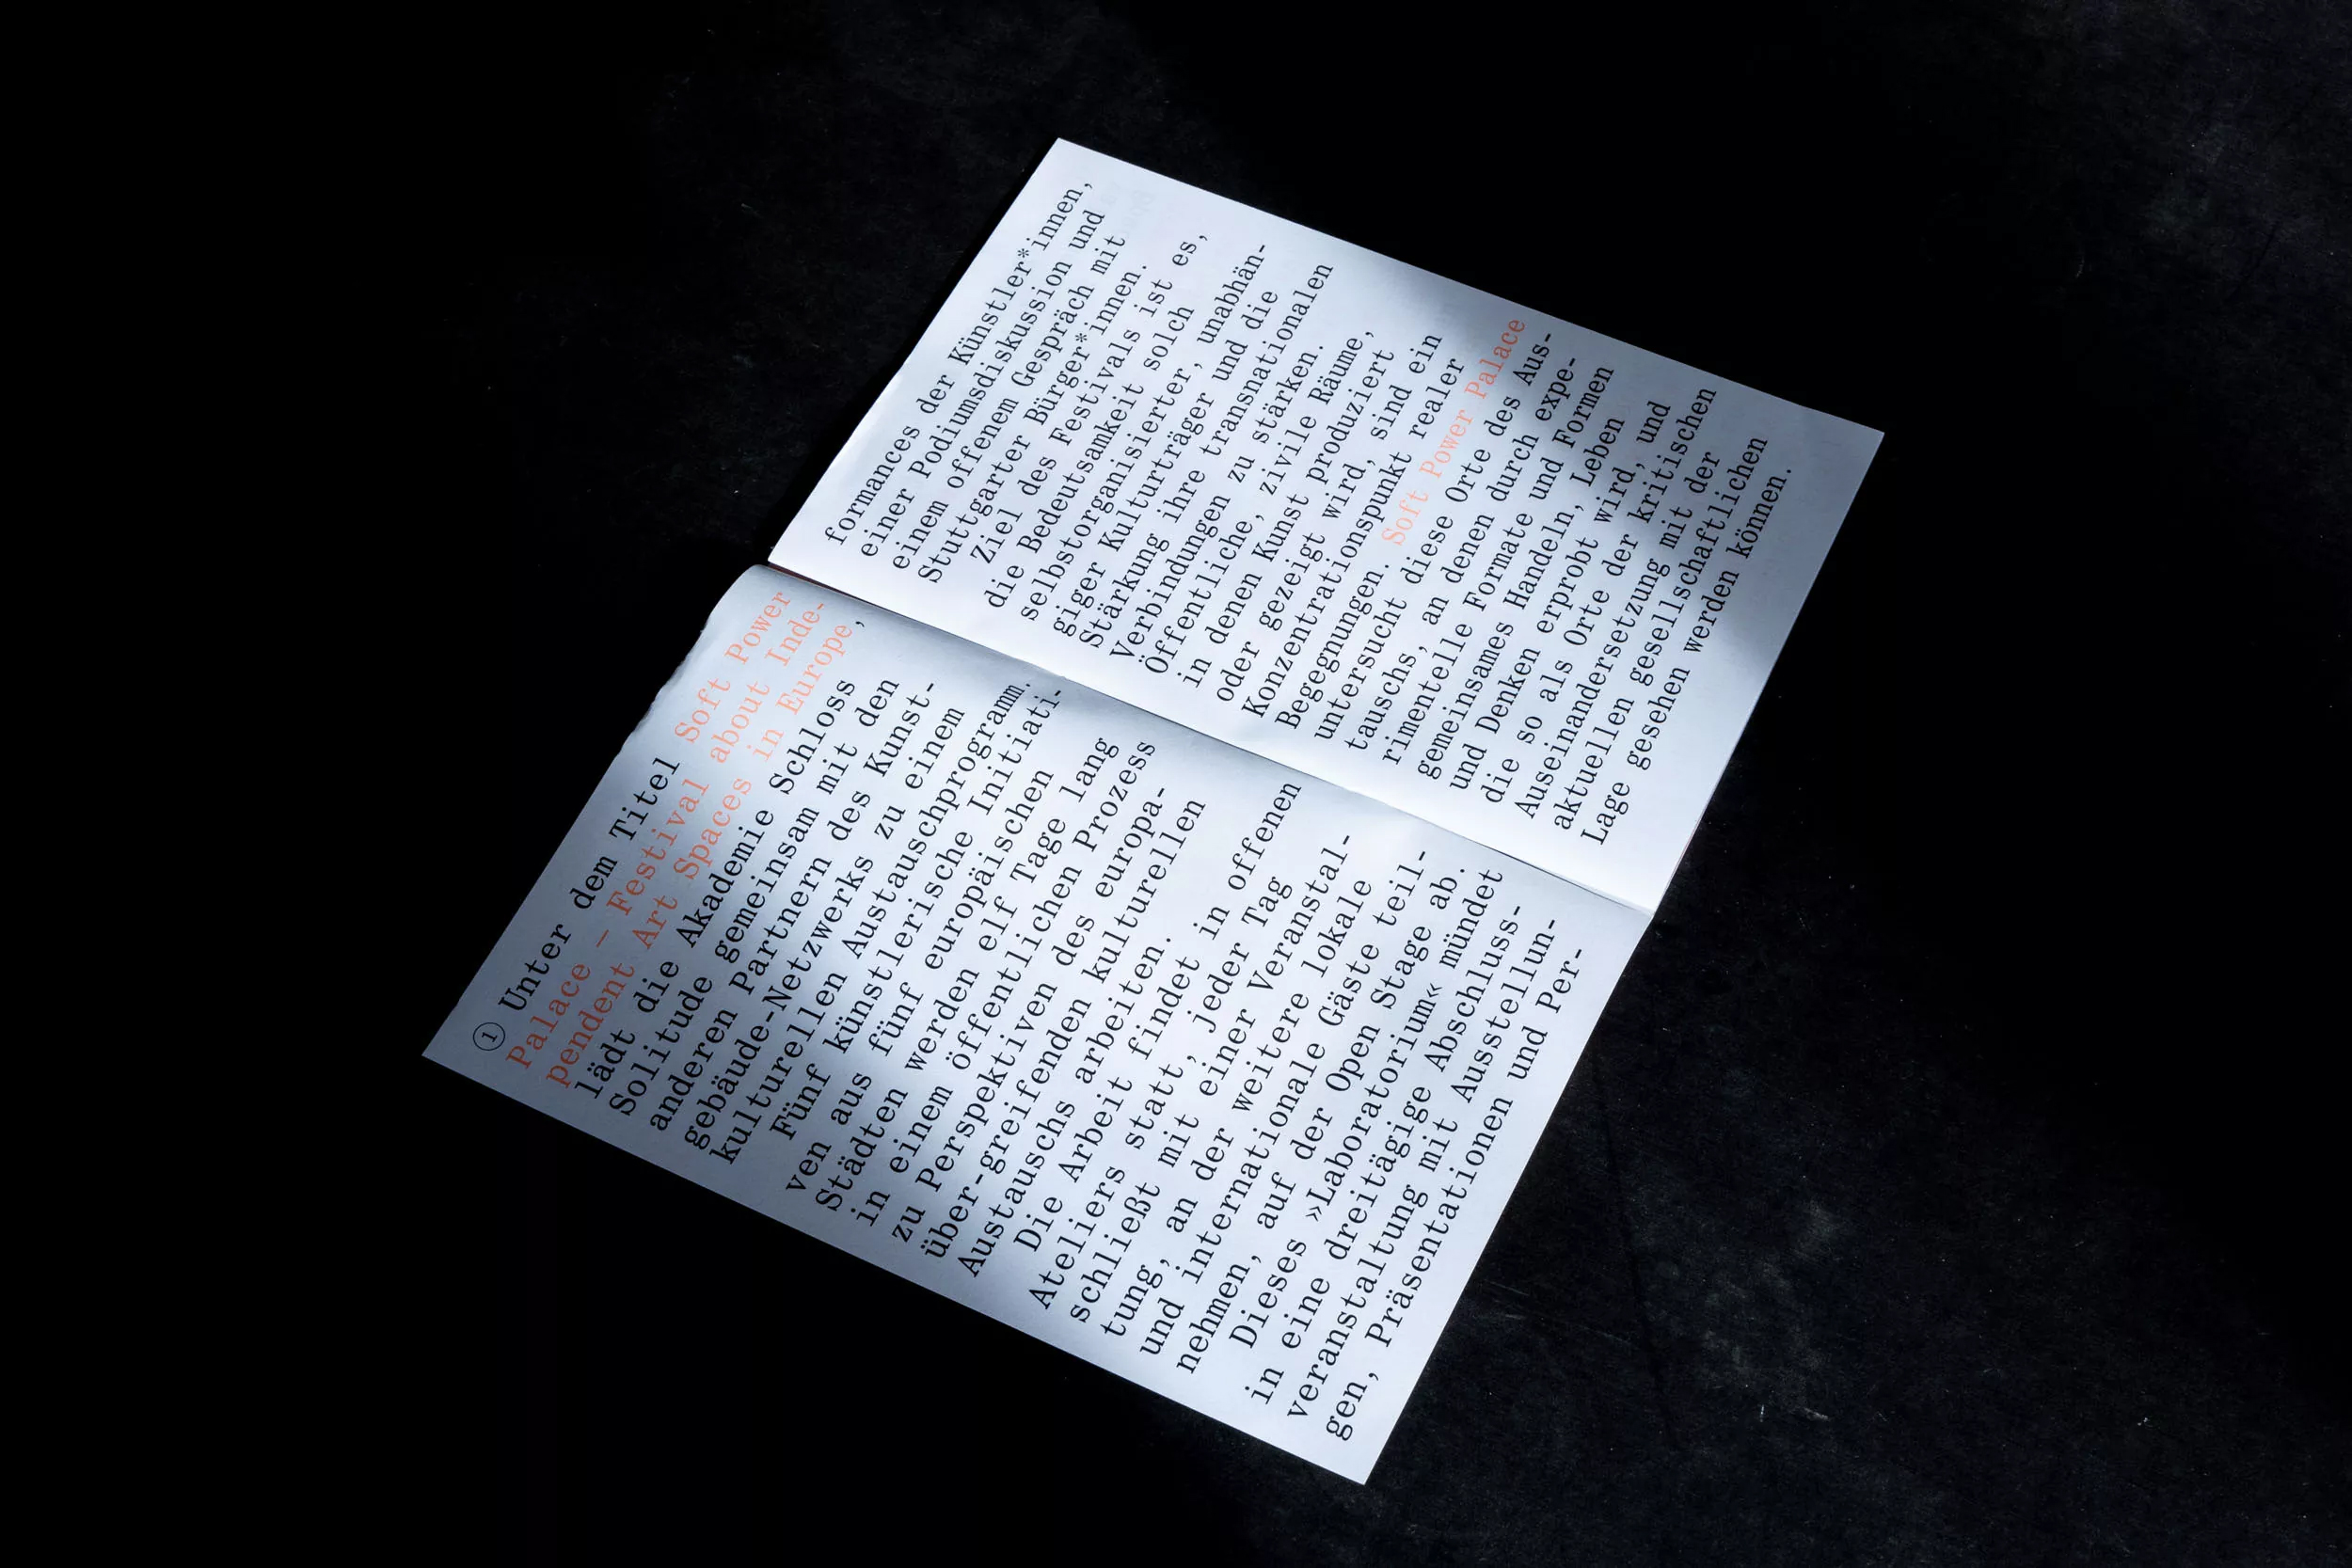 ① Unter dem Titel Soft Power
Palace – Festival about Inde-
pendent Art Spaces in Europe,
lädt die Akademie Schloss
Solitude gemeinsam mit den
anderen Partnern des Kunst-
gebäude-Netzwerks zu einem
kulturellen Austauschprogramm.
Fünf künstlerische Initiati-
ven aus fünf europäischen
Städten werden elf Tage lang
in einem öffentlichen Prozess
zu Perspektiven des europa-
über-greifenden kulturellen
Austauschs arbeiten.
Die Arbeit findet in offenen
Ateliers statt, jeder Tag
schließt mit einer Veranstal-
tung, an der weitere lokale
und internationale Gäste teil-
nehmen, auf der Open Stage ab.
Dieses »Laboratorium« mündet
in eine dreitägige Abschluss-
veranstaltung mit Ausstellun-
gen, Präsentationen und Per-
formances der Künstler*innen,
einer Podiumsdiskussion und
einem offenem Gespräch mit
Stuttgarter Bürger*innen.
Ziel des Festivals ist es,
die Bedeutsamkeit solch
selbstorganisierter, unabhän-
giger Kulturträger und die
Stärkung ihre transnationalen
Verbindungen zu stärken.
Öffentliche, zivile Räume,
in denen Kunst produziert
oder gezeigt wird, sind ein
Konzentrationspunkt realer
Begegnungen. Soft Power Palace
untersucht diese Orte des Aus-
tauschs, an denen durch expe-
rimentelle Formate und Formen
gemeinsames Handeln, Leben
und Denken erprobt wird, und
die so als Orte der kritischen
Auseinandersetzung mit der
aktuellen gesellschaftlichen
Lage gesehen werden können.